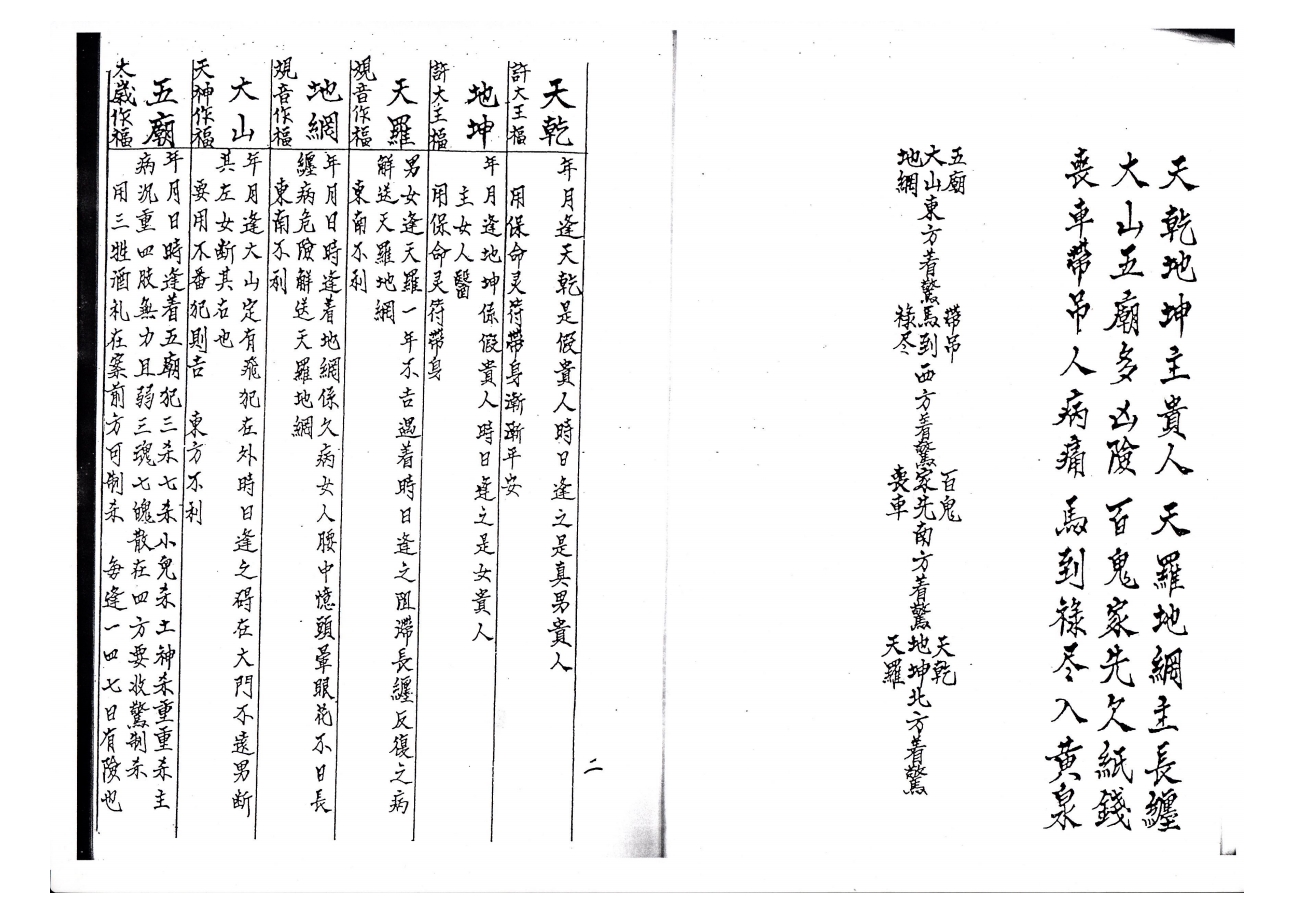 天乾地坤主貴人　天羅地網主長纏
大山五廟多凶險　百鬼家先欠紙錢
喪車帶吊人病痛　馬到祿尽入黃泉
五廟
大山東方着驚
地網
帶吊
馬到西方着驚
祿尽
百鬼
家先南方着驚
喪車
天乾
地坤北方着驚
天羅
二
天乾
許大王福
年月逢天乾是假貴人時日逢之是真男貴人
用保命灵符帶身漸漸平安
地坤
許大王福
年月逢地坤係假貴人時日逢之是女貴人
主女人醫
用保命灵符帶身
天羅
觀音作福
男女逢天羅一年不吉遇着時日逢之阻滯長纏反復之病
解送天羅地網
東南不利
地網
觀音作福
年月日時逢着地網係久病女人腰中憶頭暈眼花不日長
纏病危險解送天羅地網
東南不利
大山
天神作福
年月逢大山定有飛犯在外時日逢之碍在大門不遠男断
其左女断其右也
要用不番犯則吉　東方不利
五廟
太歲作福
年月日時逢着五廟犯三杀七杀小兒杀土神杀重重杀主
病沉重四肢無力且弱三魂七魄散在四方要收驚制杀
用三牲酒礼在案前方可制杀　每逢一四七日有險也